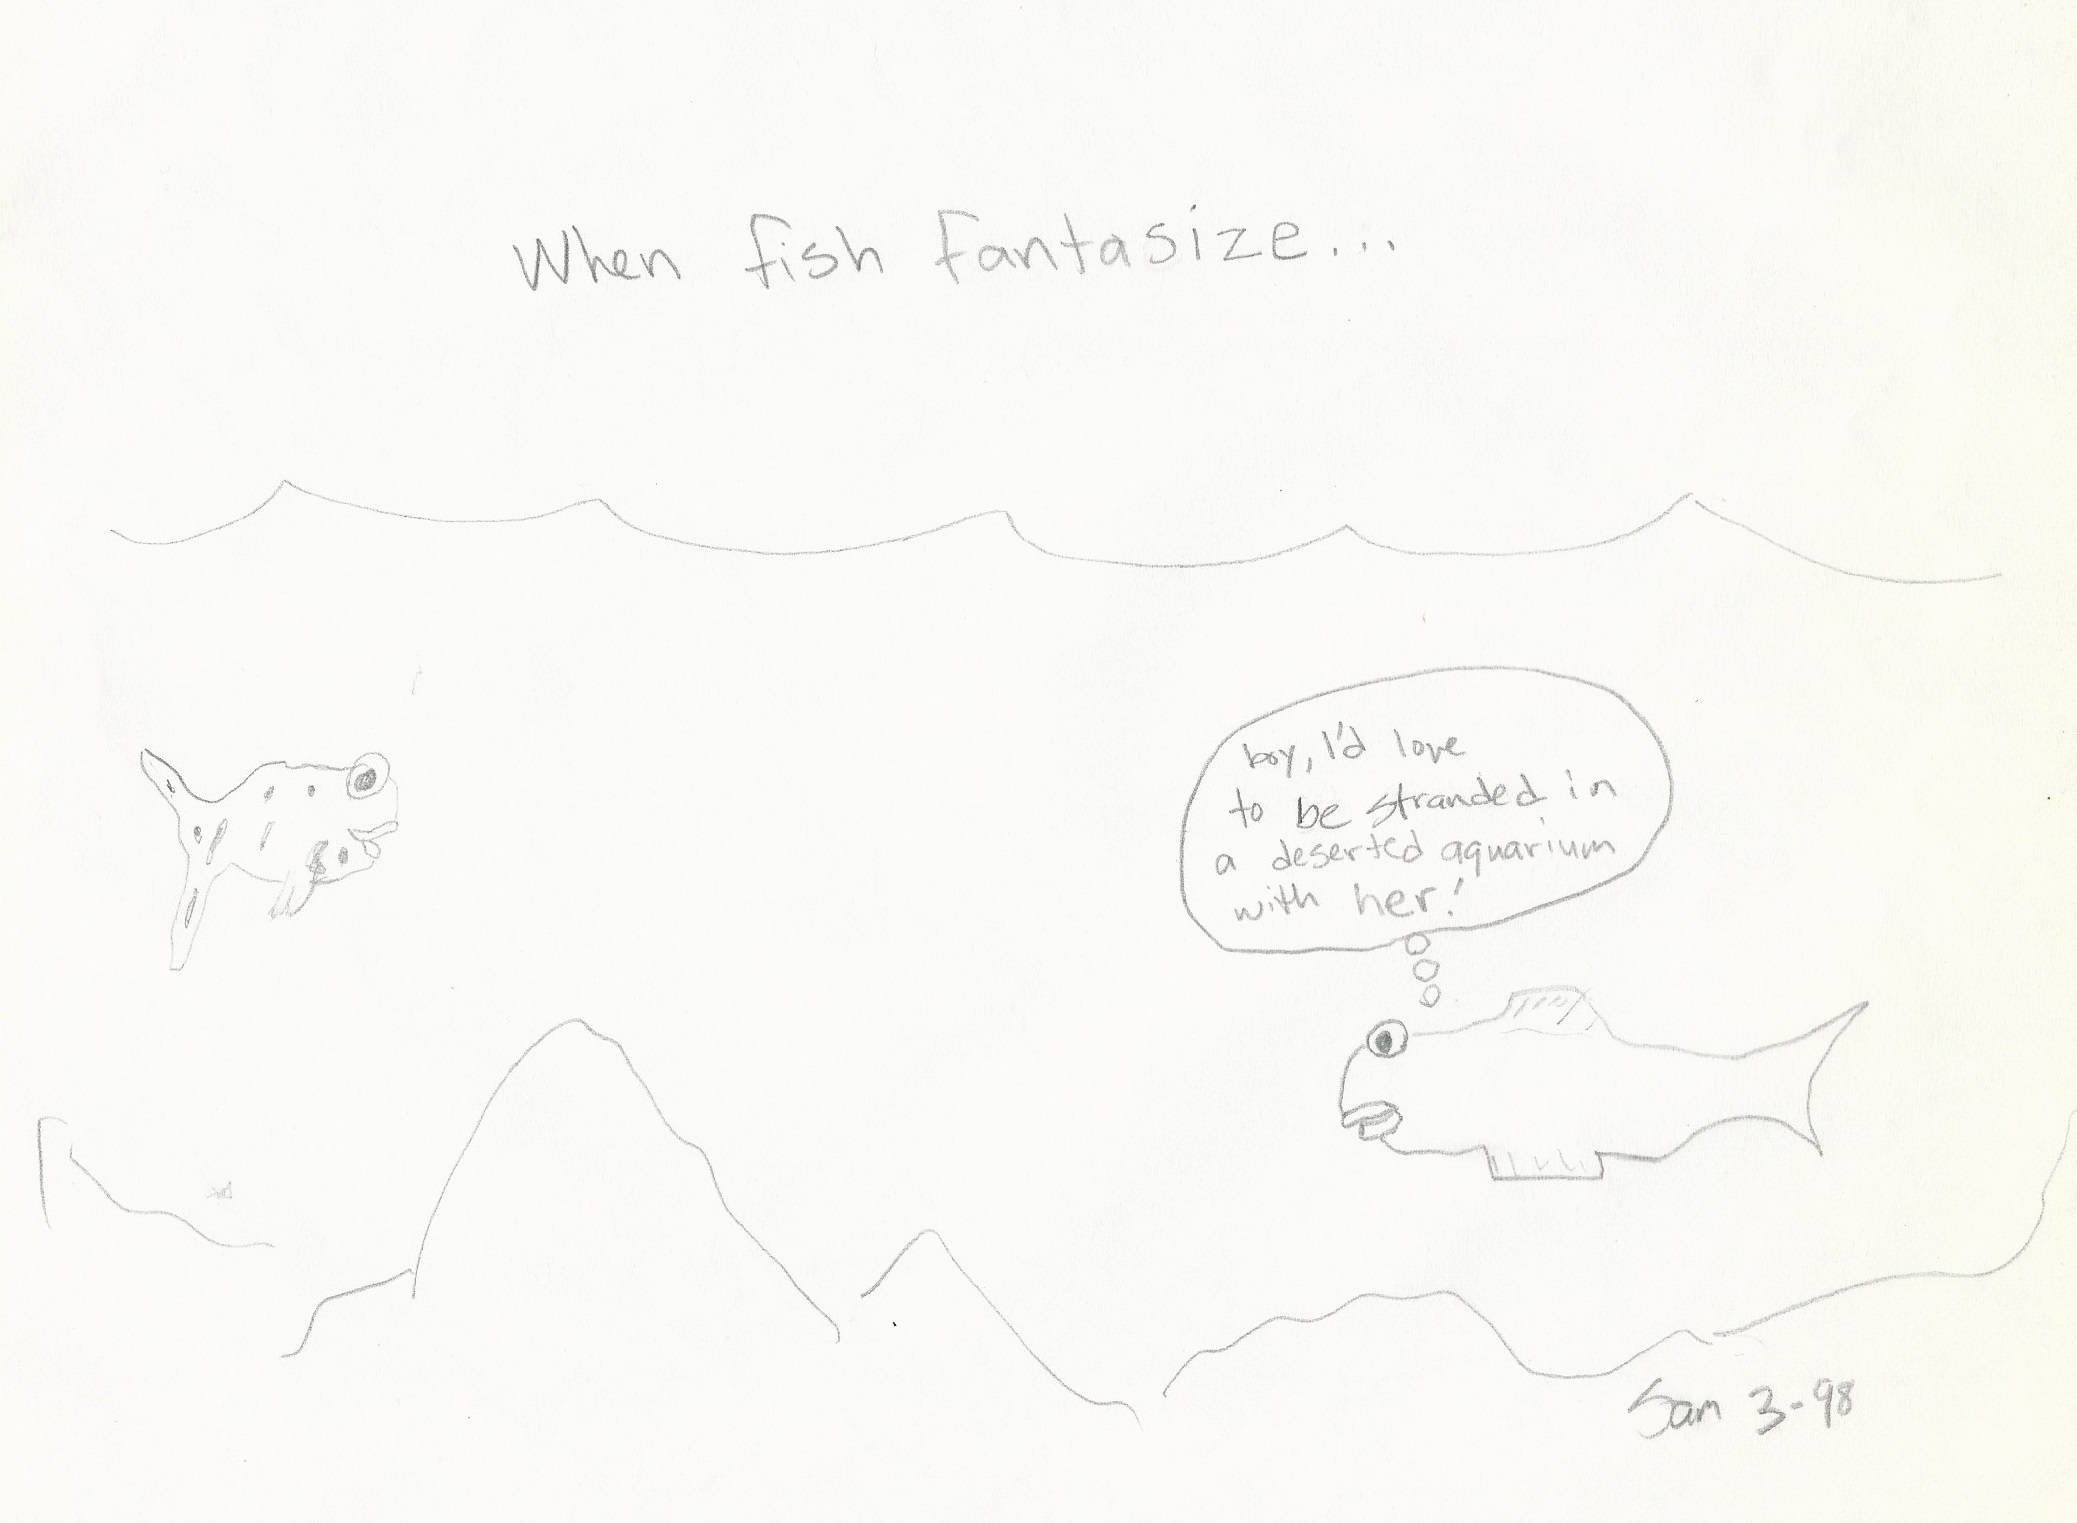 When fish fantasize...
boy, I'd love
to be stranded in
a deserted aquarium
with her!
Sam 3-98